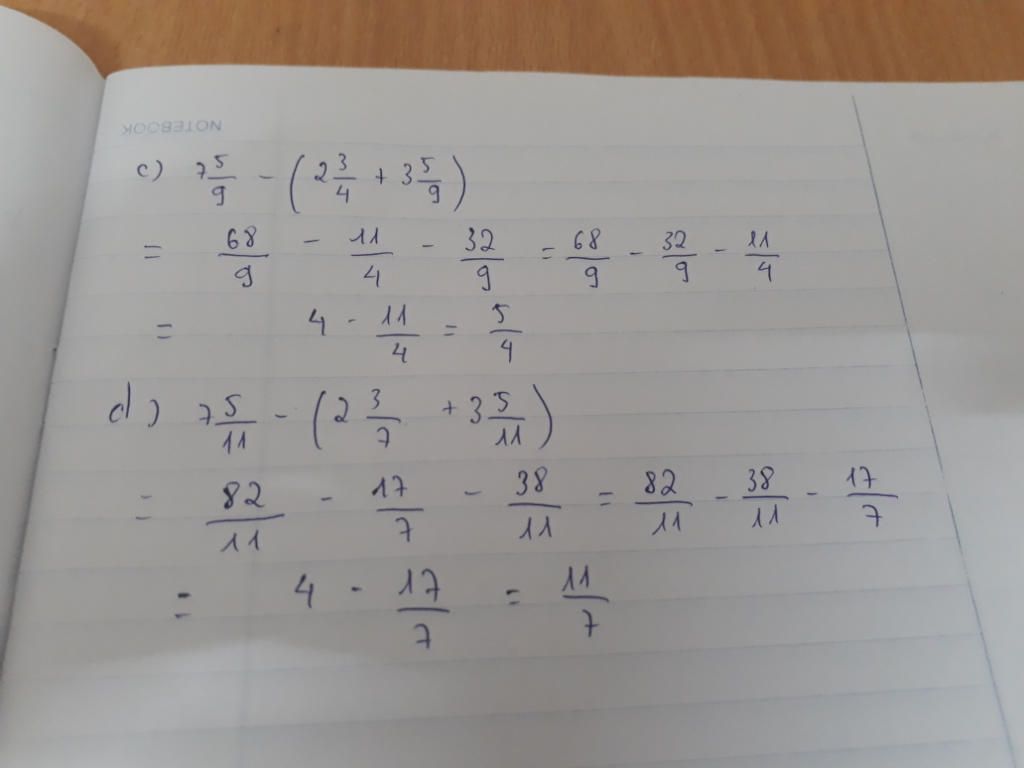 NOTEBOOK
c) 7 5/9 - (2 3/4 + 3 5/9)
= 68/9 - 11/4 - 32/9 = 68/9 - 32/9 - 11/4
= 4 - 11/4 = 5/4
d) 7 5/11 - (2 3/7 + 3 5/11)
= 82/11 - 17/7 - 38/11 = 82/11 - 38/11 - 17/7
= 4 - 17/7 = 11/7